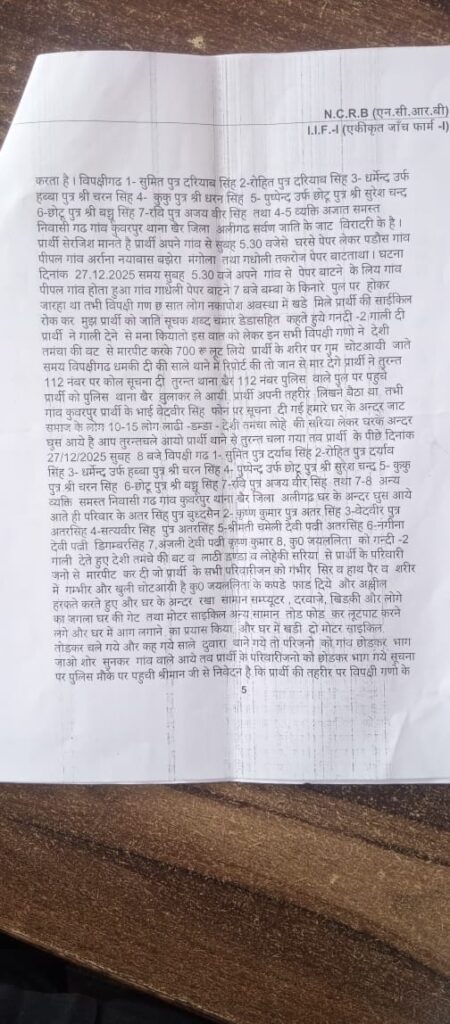 N.C.R.B (एन.सी.आर.बी)
I.I.F.-I (एकीकृत जाँच फार्म -I)
करता है। विपक्षीगढ 1- सुमित पुत्र दरियाब सिंह 2-रोहित पुत्र दरियाब सिंह 3- धर्मेन्द उर्फ
हब्बा पुत्र श्री चरन सिंह 4- कुकु पुत्र श्री धरन सिंह 5- पुष्पेन्द उर्फ छोटू पुत्र श्री सुरेश चन्द
6-छोटू पुत्र श्री बच्चू सिंह 7-रवि पुत्र अजय वीर सिंह तथा 4-5 व्यक्ति अज्ञात समस्त
निवासी गढ गांव कुवरपुर थाना खैर जिला अलीगढ सर्वण जाति के जाट विरादरी के है।
प्रार्थी सेरजिश मानते है प्रार्थी अपने गांव से सुबह 5.30 बजेसे घरसे पेपर लेकर पडौस गांव
पीपल गांव अर्राना नयाबास बझेरा मंगोला तथा गधोली तकरोज पेपर बाटताथा। घटना
दिनांक 27.12.2025 समय सुबह 5.30 बजे अपने गांव से पेपर बाटने के लिय गांव
पीपल गांव होता हुआ गांव गाधेली पेपर बाटने 7 बजे बम्बा के किनारे पुल पर होकर
जारहा था तभी विपक्षी गण छ सात लोग नकापोश अवस्था में खडे मिले प्रार्थी की साईकिल
रोक कर मुझ प्रार्थी को जाति सूचक शब्द चमार डेडासहित कहते हुये गनदी -2 गाली दी
प्रार्थी ने गाली देने से मना कियातो इस वात को लेकर इन सभी विपक्षी गणो ने देशी
तमंचा की वट से मारपीट करके 700 रू लूट लिये प्रार्थी के शरीर पर गुम चोटआयी जाते
समय विपक्षीगढ धमकी दी की साले थाने में रिपोर्ट की तो जान से मार देगे प्रार्थी ने तुरन्त
112 नबर पर कोल सूचना दी तुरन्त थाना खैर 112 नबर पुलिस वाले पुल पर पहुचे
प्रार्थी को पुलिस थाना खैर वुलाकर ले आयी प्रार्थी अपनी तहरीर लिखने बैठा था तभी
गांव कुवरपुर प्रार्थी के भाई वेटवीर सिह फोन पर सूचना दी गई हमारे घर के अन्दर जाट
समाज के लोग 10-15 लोग लाढी -डन्डा - देशी तमचा लोहे की सरिया लेकर घरके अन्दर
घुस आये है आप तुरन्तचले आयो प्रार्थी थाने से तुरन्त चला गया तव प्रार्थी के पीछे टिनांक
27/12/2025 सुबह 8 बजे विपक्षी गढ 1- सुमित पुत्र दर्याब सिंह 2-रोहित पुत्र दर्याव
सिंह 3- धर्मेन्द उर्फ हब्बा पुत्र श्री चरन सिंह 4- पुष्पेन्द उर्फ छोटू पुत्र श्री सुरेश चन्द 5- कुकु
पुत्र श्री चरन सिंह 6-छोटू पुत्र श्री बच्चू सिंह 7-रवि पुत्र अजय वीर सिंह तथा 7-8 अन्य
व्यक्ति समस्त निवासी गढ गांव कुवरपुर थाना खैर जिला अलीगढ घर के अन्दर घुस आये
आते ही परिवार के अतर सिंह पुत्र बुध्दसैन 2- कृष्ण कुमार पुत्र अतर सिंह 3-वेदवीर पुत्र
अतरसिंह 4-सत्यवीर सिंह पुत्र अतरसिंह 5-श्रीमती चमेली देवी पत्नी अतरसिह 6-नगीना
देवी पत्नी डिगम्बरसिह 7,अंजली देवी पत्नी कृष्ण कुमार 8, कु0 जयललिता को गन्दी -2
गाली देते हुए देशी तमचे की बट व लाठी डण्डा व लोहेकी सरिया से प्रार्थी के परिवारी
जनो से मारपीट कर दी जो प्रार्थी के सभी परिवारीजन को गंभीर सिर व हाथ पैर व शरीर
में गम्भीर और खुली चोटआयी है कु0 जयललिता के कपडे फाड दिये और अश्लील
हरकते करते हुए और घर के अन्दर रखा सामान सम्प्यूटर , दरवाजे, खिडकी और लोगे
का जगला घर की गेट तथा मोटर साइकिल अन्य सामान तोड फोड कर लूटपाट करने
लगे और घर में आग लगाने का प्रयास किया, और घर में खडी दो मोटर साइकिल
तोडकर चले गये और कह गये साले दुवारा थाने गये तो परिजनो को गांव छोडकर भाग
जाओ शोर सुनकर गांव वाले आये तव प्रार्थी के परिवारीजनो को छोडकर भाग गये सूचना
पर पुलिस मौके पर पहुची श्रीमान जी से निवेदन है कि प्रार्थी की तहरीर पर विपक्षी गणो के
5